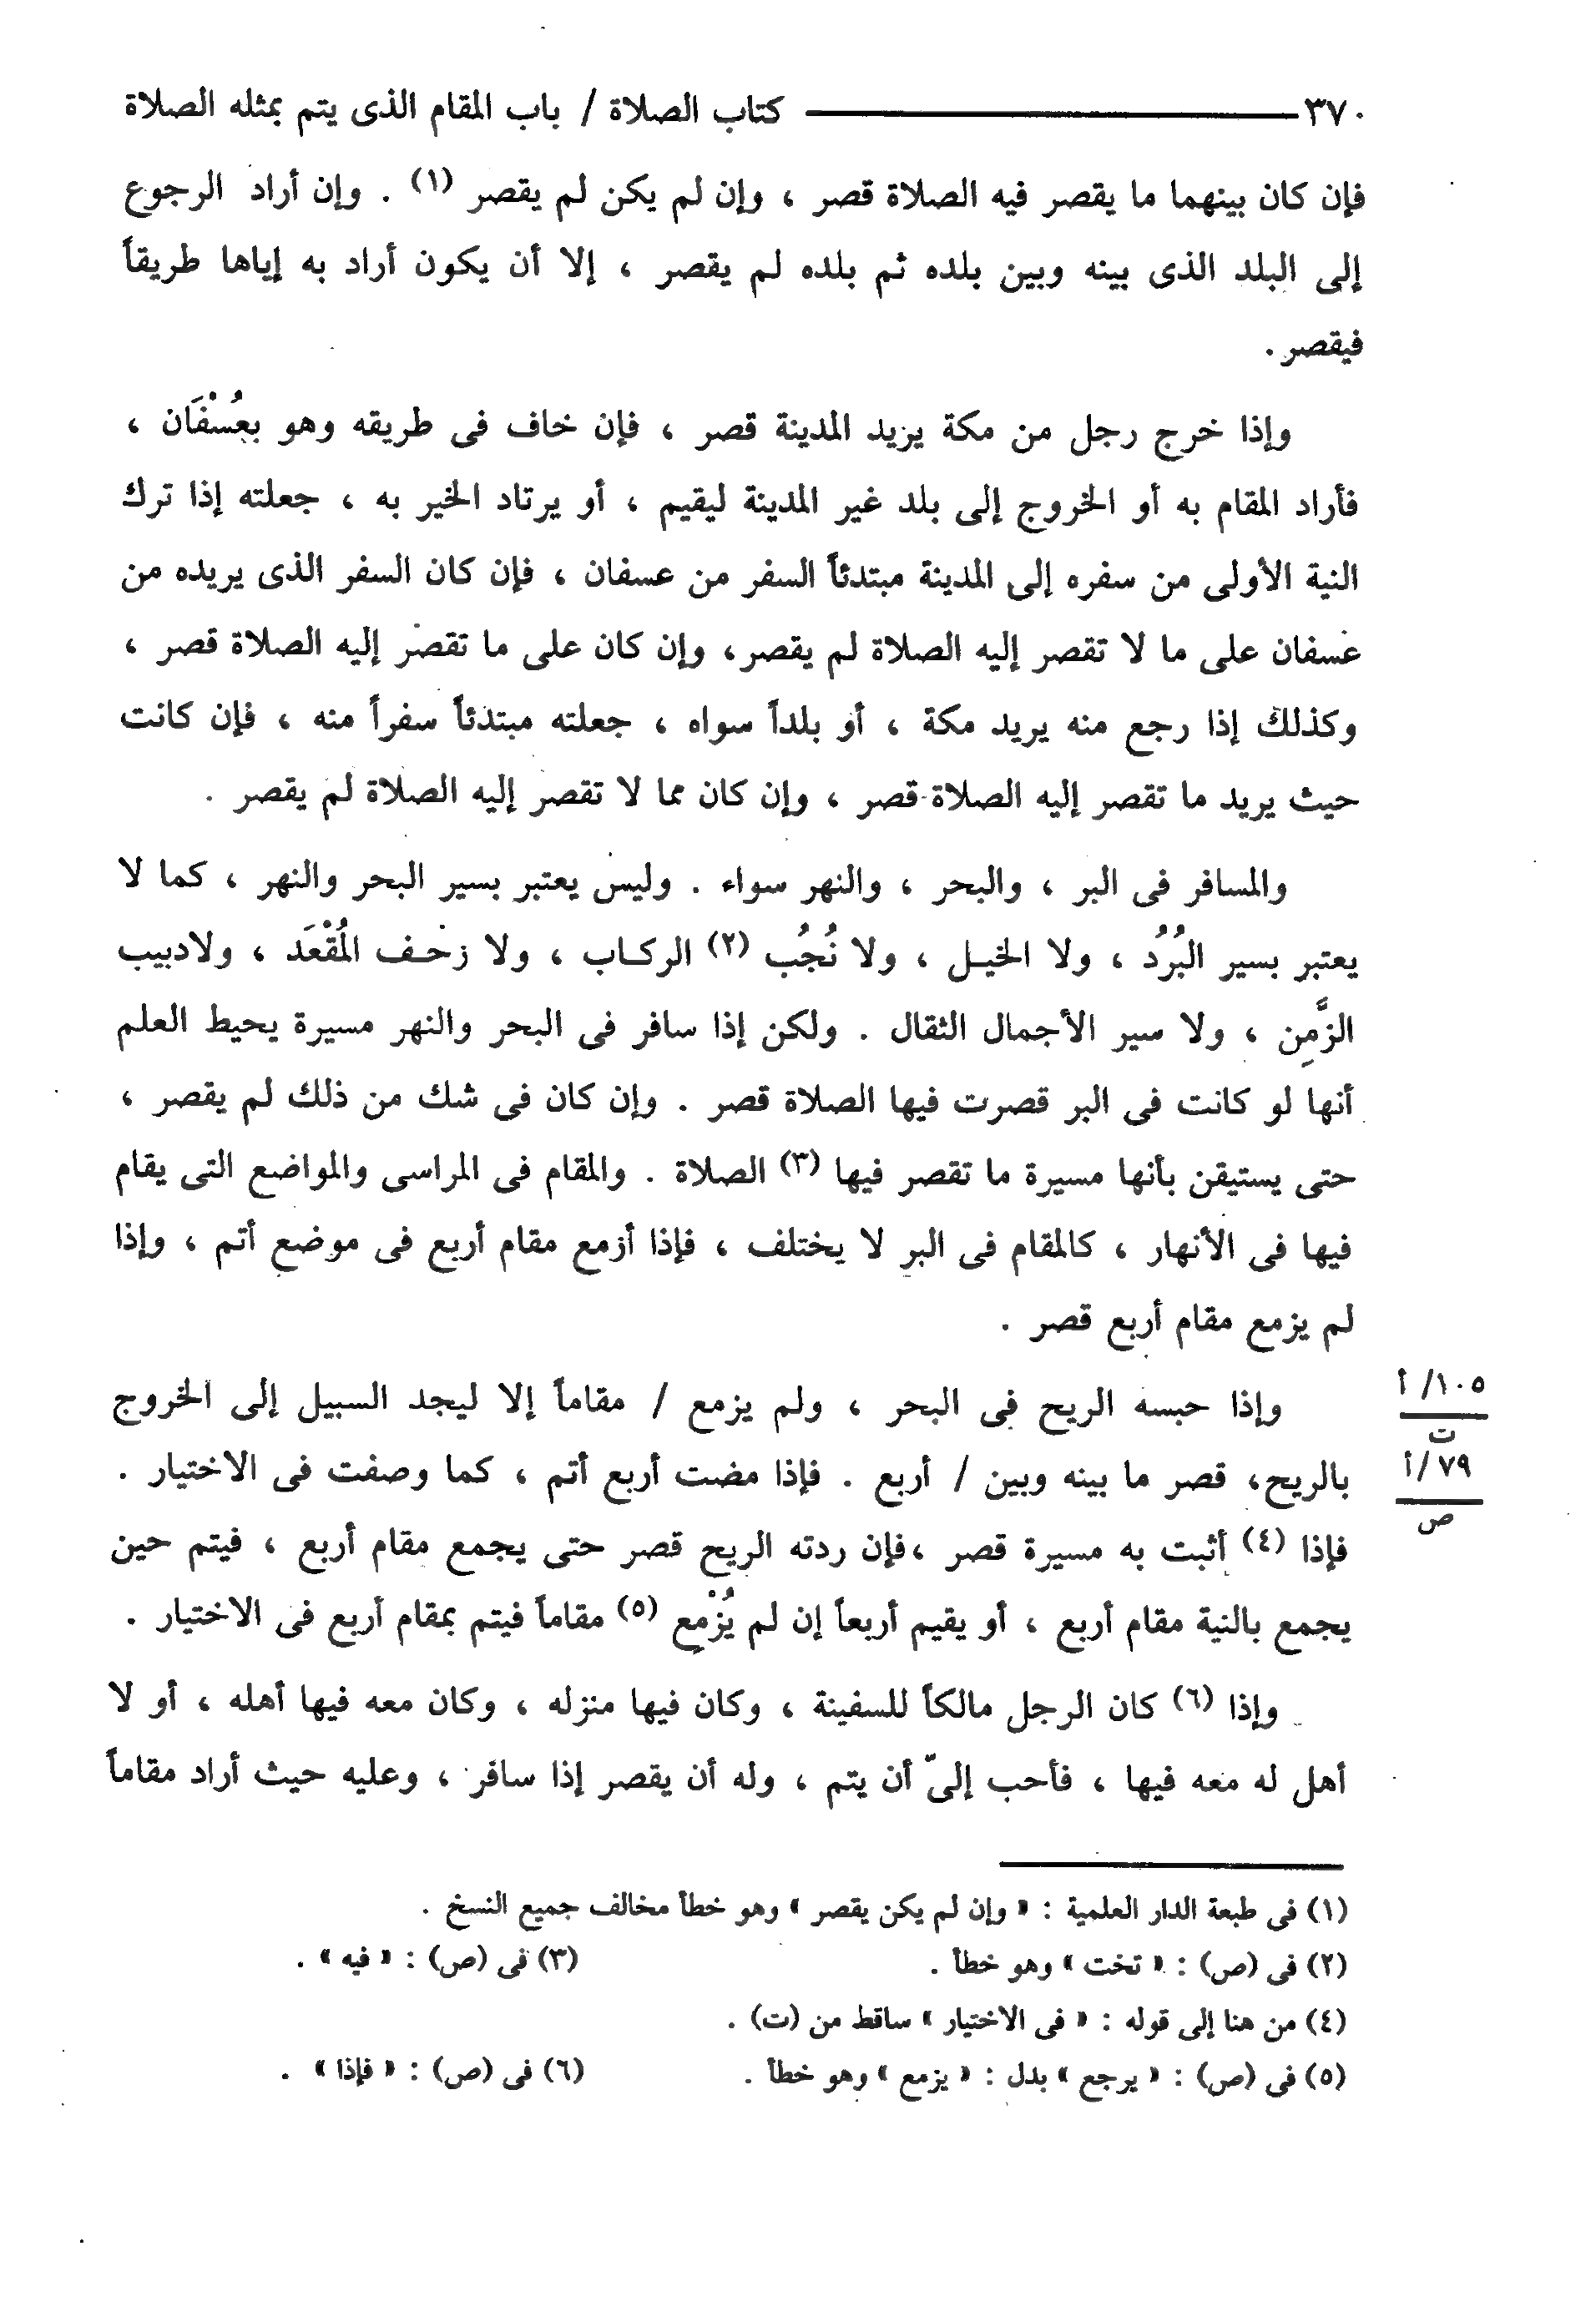 ٣٧٠ ـــــــــــــــــ كتاب الصلاة / باب المقام الذى يتم بمثله الصلاة
فإن كان بينهما ما يقصر فيه الصلاة قصر ، وإن لم يكن لم يقصر (١) . وإن أراد الرجوع
إلى البلد الذى بينه وبين بلده ثم بلده لم يقصر ، إلا أن يكون أراد به إياها طريقاً
فيقصر .
وإذا خرج رجل من مكة يريد المدينة قصر ، فإن خاف فى طريقه وهو بعُسْفَان ،
فأراد المقام به أو الخروج إلى بلد غير المدينة ليقيم ، أو يرتاد الخير به ، جعلته إذا ترك
النية الأولى من سفره إلى المدينة مبتدئاً السفر من عسفان ، فإن كان السفر الذى يريده من
عسفان على ما لا تقصر إليه الصلاة لم يقصر، وإن كان على ما تقصر إليه الصلاة قصر ،
وكذلك إذا رجع منه يريد مكة ، أو بلداً سواه ، جعلته مبتدئاً سفراً منه ، فإن كانت
حيث يريد ما تقصر إليه الصلاة قصر ، وإن كان مما لا تقصر إليه الصلاة لم يقصر .
والمسافر فى البر ، والبحر ، والنهر سواء . وليس يعتبر بسير البحر والنهر ، كما لا
يعتبر بسير البُرُد ، ولا الخيـل ، ولا نُجُب (٢) الركـاب ، ولا زحـف المُقْعَد ، ولادبيب
الزَّمِن ، ولا سير الأجمال الثقال . ولكن إذا سافر فى البحر والنهر مسيرة يحيط العلم
أنها لو كانت فى البر قصرت فيها الصلاة قصر . وإن كان فى شك من ذلك لم يقصر ،
حتى يستيقن بأنها مسيرة ما تقصر فيها (٣) الصلاة . والمقام فى المراسى والمواضع التى يقام
فيها فى الأنهار ، كالمقام فى البر لا يختلف ، فإذا أزمع مقام أربع فى موضع أتم ، وإذا
لم يزمع مقام أربع قصر .
وإذا حبسه الريح فى البحر ، ولم يزمع / مقاماً إلا ليجد السبيل إلى الخروج
١٠٥/ أ
ت
بالريح، قصر ما بينه وبين / أربع . فإذا مضت أربع أتم ، كما وصفت فى الاختيار .
٧٩/ أ
ص
فإذا (٤) أثبت به مسيرة قصر ،فإن ردته الريح قصر حتى يجمع مقام أربع ، فيتم حين
يجمع بالنية مقام أربع ، أو يقيم أربعاً إن لم يُزْمِع (٥) مقاماً فيتم بمقام أربع فى الاختيار .
وإذا (٦) كان الرجل مالكاً للسفينة ، وكان فيها منزله ، وكان معه فيها أهله ، أو لا
أهل له معه فيها ، فأحب إلىّ أن يتم ، وله أن يقصر إذا سافر ، وعليه حيث أراد مقاماً
(١) فى طبعة الدار العلمية : « وإن لم يكن يقصر » وهو خطأ مخالف جميع النسخ .
(٢) فى (ص) : « تخت » وهو خطأ . (٣) فى (ص) : « فيه » .
(٤) من هنا إلى قوله : « فى الاختيار » ساقط من (ت) .
(٥) فى (ص) : « يرجع » بدل : « يزمع » وهو خطأ . (٦) فى (ص) : « فإذا » .